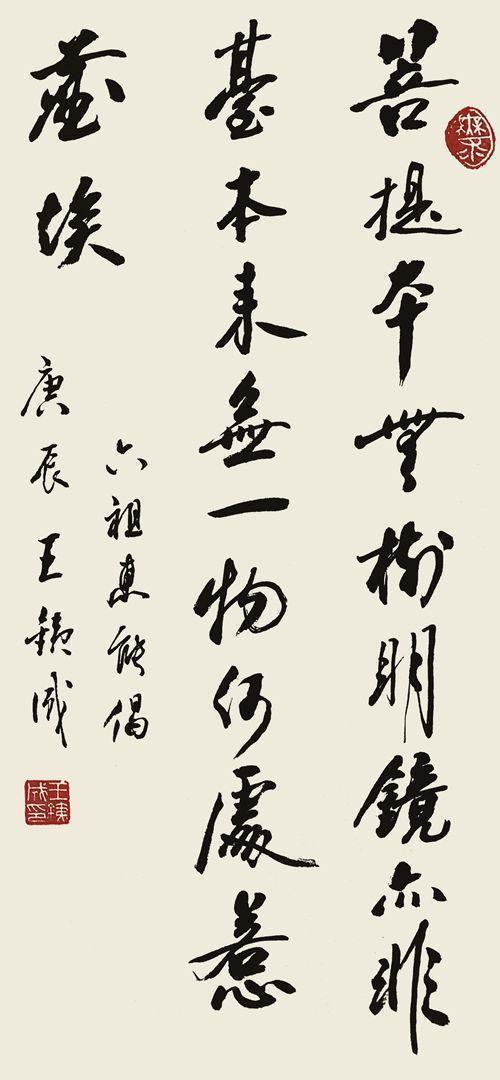 菩提本無樹明鏡亦非
臺本来無一物何處惹
塵埃
六祖惠能偈
庚辰王銕成